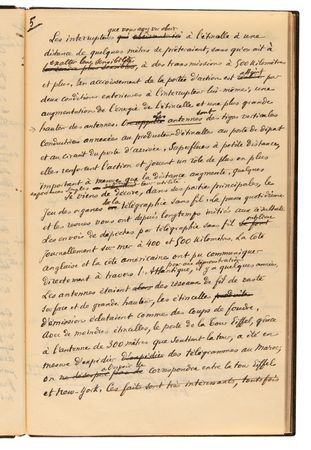 5
que vous avez vu obéir
Les interrupteurs à l'étincelle à une
distance de quelques mètres se prêteraient, sans qu'on ait à
exalter leur sensibilité
, à des transmissions à 500 kilomètres
et plus. Cet accroissement de la portée d'action est atteint par
deux conditions extérieures à l'interrupteur lui-même, une
augmentation de l'énergie de l'étincelle et une plus grande
hauteur des antennes. antennes des tiges verticales
conductrices annexées au producteur d'étincelles au poste de départ
et au circuit du poste d'arrivée. Superflues à petite distance,
elles renforcent l'action et jouent un rôle de plus en plus
important à mesure que la distance augmente,
Je viens de décrire, dans ses parties principales, le
jeu des organes de la télégraphie sans fil. Le passé quotidienne
et les revues vous ont depuis longtemps initiés aux résultats.
Les envois de dépêches par télégraphie sans fil
journellement sur mer à 400 et 500 kilomètres. La côte
anglaise et la côte américaine ont pu communiquer
directement à travers l'Atlantique, il y a quelques années,
Les antennes étaient alors des réseaux de fil de vaste
surface et de grande hauteur, les étincelles
d'émission éclataient comme des coups de foudre.
Avec de moindres étincelles, le poste de la Tour Eiffel, grâce
à l'antenne de 300 mètres que soutient la tour, a été en
mesure d'expédier des télégrammes au Maroc;
on correspondre entre la tour Eiffel
et New-York. Ces faits sont très intéressants, toutefois